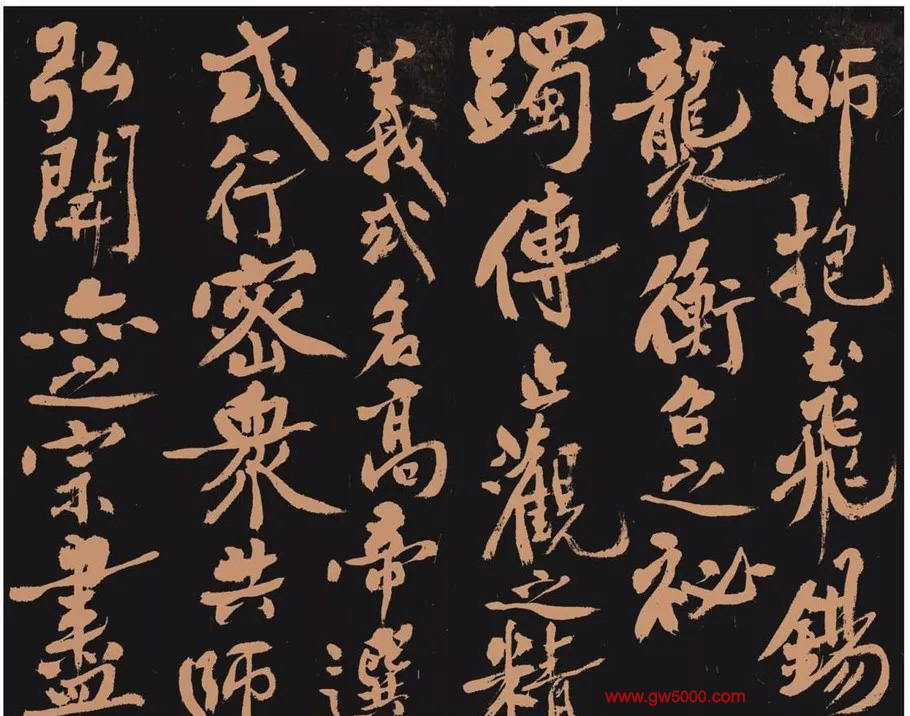 師抱玉飛錫
襲衡台之祕
躅傳止觀之精
義或名高帝選
或行密衆共師
弘開示之宗盡
www.gw5000.com